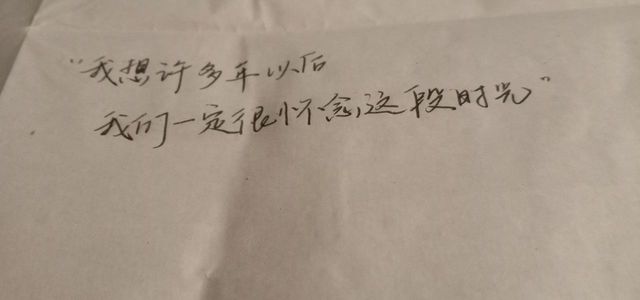 “我想许多年以后
我们一定很怀念这段时光”